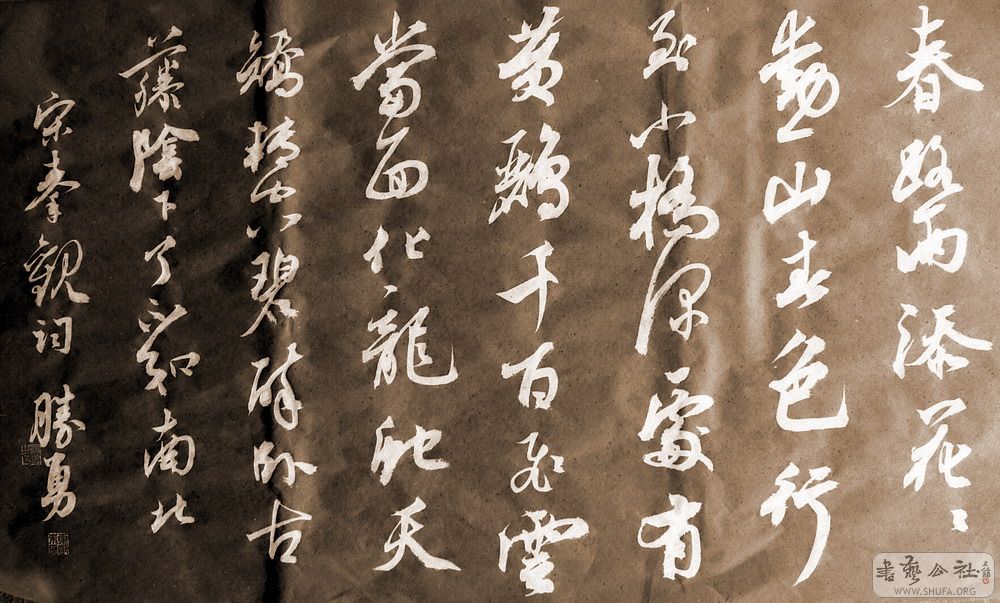 春路雨添花〻
動一山春色行
到小橋深處有
黃鸝千百飛雲
當面化龍蛇夭
矯轉空碧醉卧古
藤陰下了不知南北
宋秦觀詞 勝勇
書藝公社
WWW.SHUFA.ORG